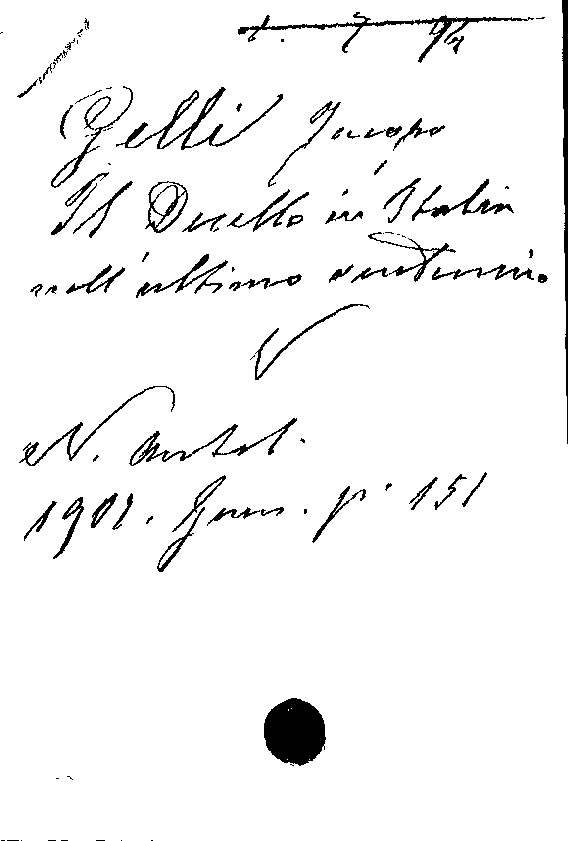 1. 7 94
Gelli Jacopo
Il Duello in Italia
nell'ultimo ventennio
V
N. Antol.
1901. Genn. p. 151